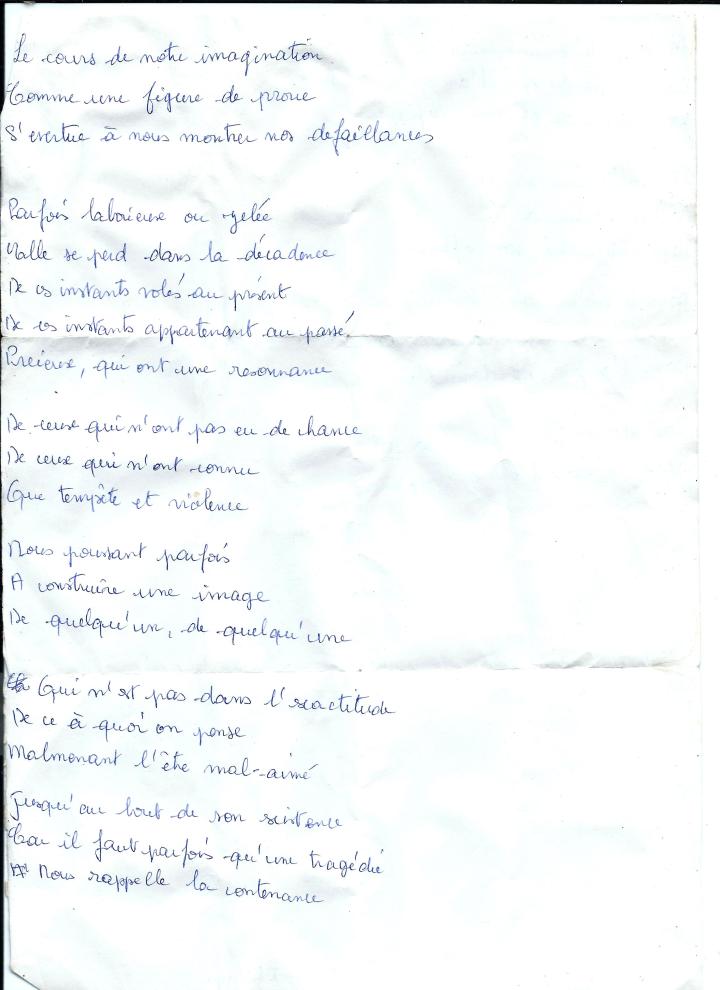 Le cours de notre imagination
Comme une figure de proue
S'evertue à nous montrer nos defaillances
Parfois laborieuse ou gelée
se perd dans la décadence
De ces instants volés au présent
De ces instants appartenant au passé
Precieux, qui ont une resonnance
De ceux qui n'ont pas eu de chance
De ceux qui n'ont connu
Que tempête et violence
Nous poussant parfois
A construire une image
De quelqu'un, de quelqu'une
Qui n'est pas dans l'exactitude
De ce à quoi on pense
Malmenant l'être mal-aimé
Jusqu'au bout de son existence
Car il faut parfois qu'une tragédie
Nous rappelle la contenance